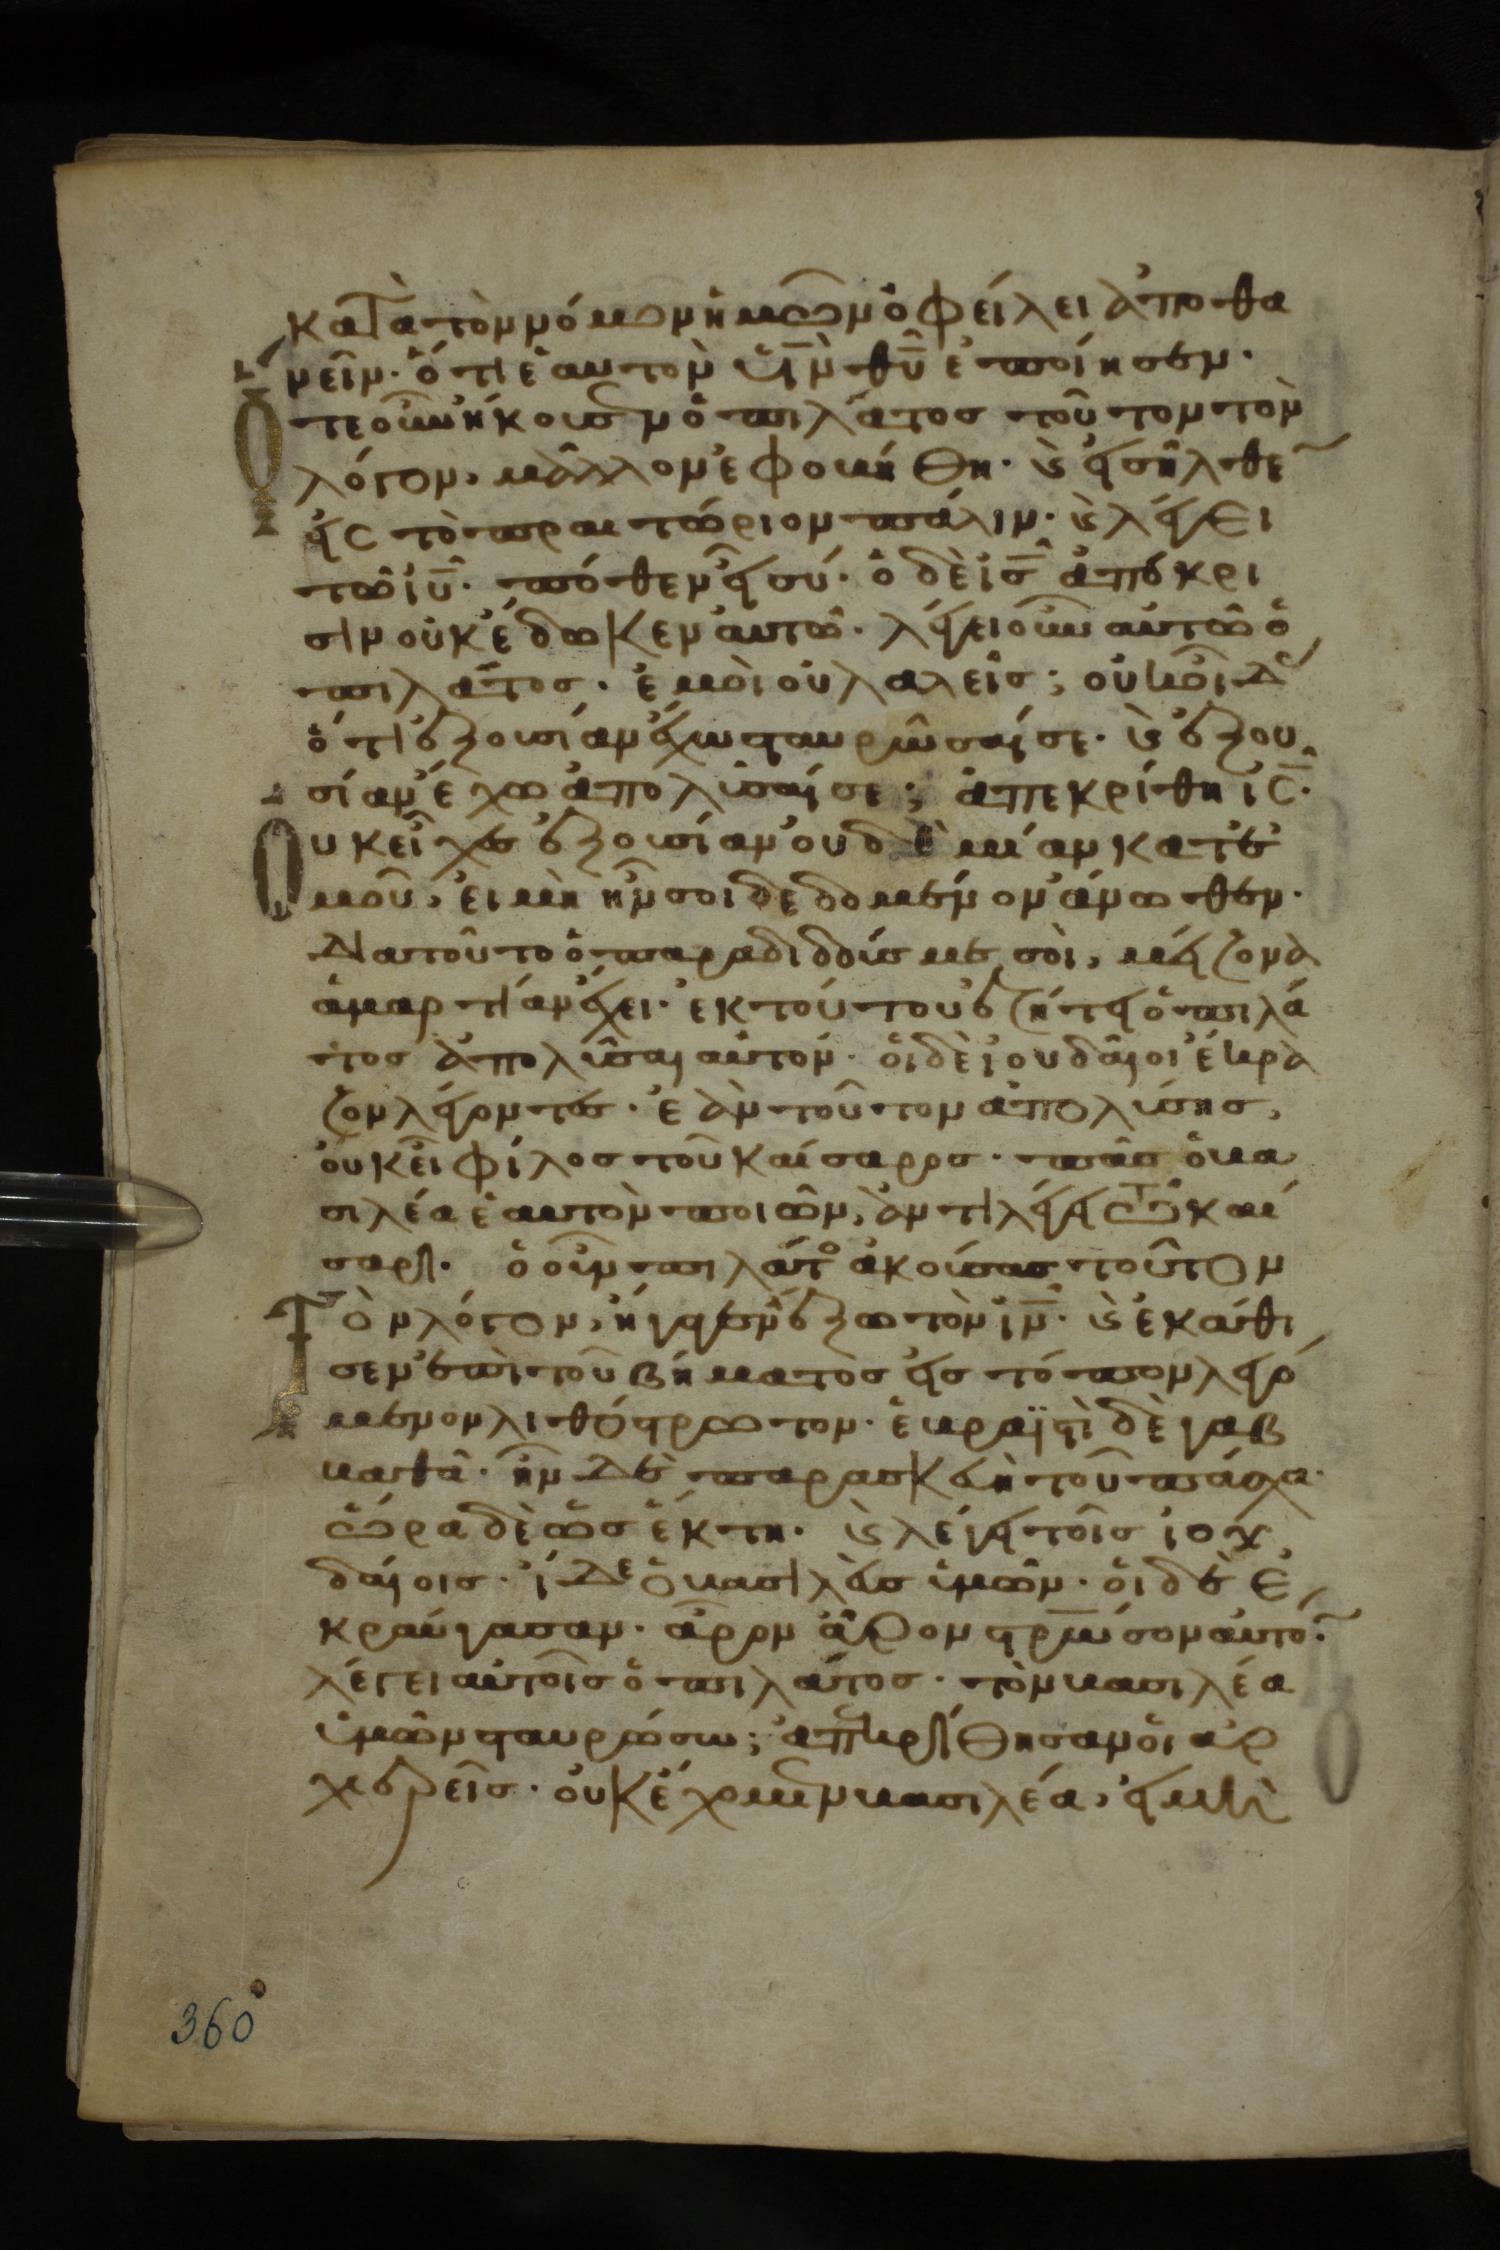 κατὰ τὸν νόμον ἡμῶν ὀφείλει ἀποθα
νεῖν· ὅτι ἑαυτὸν υἱ̅ν̅ θ̅υ̅ ἐποίησεν·
Ὅτε οὖν ἤκουσεν ὁ πιλάτος τοῦτον τὸν
λόγον, μᾶλλον ἐφοβήθη· καὶ εἰσῆλθε
εἰς τὸ πραιτώριον πάλιν· καὶ λέγει
τῶ ι̅υ̅· πόθεν εἶ σύ· ὁ δὲ ι̅ς̅ ἀπόκρι
σιν οὐκ ἔδωκεν αὐτῶ· λέγει οὖν αὐτῶ ὁ
πιλάτος· ἐμοὶ οὐ λαλεῖς; οὐκ οἶδας
ὅτι ἐξουσίαν ἔχω σταυρῶσαί σε· καὶ ἐξου
σίαν ἔχω ἀπολῦσαί σε; ἀπεκρίθη ι̅ς̅·
Οὐκ εἶχες ἐξουσίαν οὐδεμίαν κατ ἐ
μοῦ, εἰ μὴ ἦν σοι δεδομένον ἄνωθεν·
διατοῦτο ὁ παραδιδούς με σοὶ, μείζονα
ἁμαρτίαν ἔχει· ἐκ τούτου ἐζήτει ὁ πιλά
τος ἀπολῦσαι αὐτόν· οἱ δὲ ἰουδαῖοι ἔκρα
ζον λέγοντες· ἐὰν τοῦτον ἀπολύσης,
οὐκ εἶ φίλος τοῦ καίσαρος· πᾶς ὁ βα
σιλέα ἑαυτὸν ποιῶν, ἀντιλέγει τῶ καί
σαρι· ὁ οὖν πιλάτος ἀκούσας τοῦτον
Τὸν λόγον, ἤγαγεν ἔξω τὸν ι̅ν̅· καὶ ἐκάθι
σεν ἐπὶ τοῦ βήματος εἰς τόπον λεγό
μενον λιθόστρωτον· ἑβραϊστὶ δὲ γαβ
βαθᾶ· ἦν δὲ παρασκευὴ τοῦ πάσχα·
ὥρα δὲ ὡς ἕκτη· καὶ λέγει τοῖς ιου
δαίοις· ἴδε ὁ βασιλεὺς ὑμῶν· οἱ δὲ ἐ
κραύγασαν· ἆρον ἆρον στ̅ρ̅ώσον αὐτόν·
λέγει αὐτοῖς ὁ πιλάτος· τὸν βασιλέα
ὑμῶν σταυρώσω; ἀπεκρίθησαν οἱ ἀρ
χιερεῖς· οὐκ ἔχομεν βασιλέα, εἰ μὴ
360